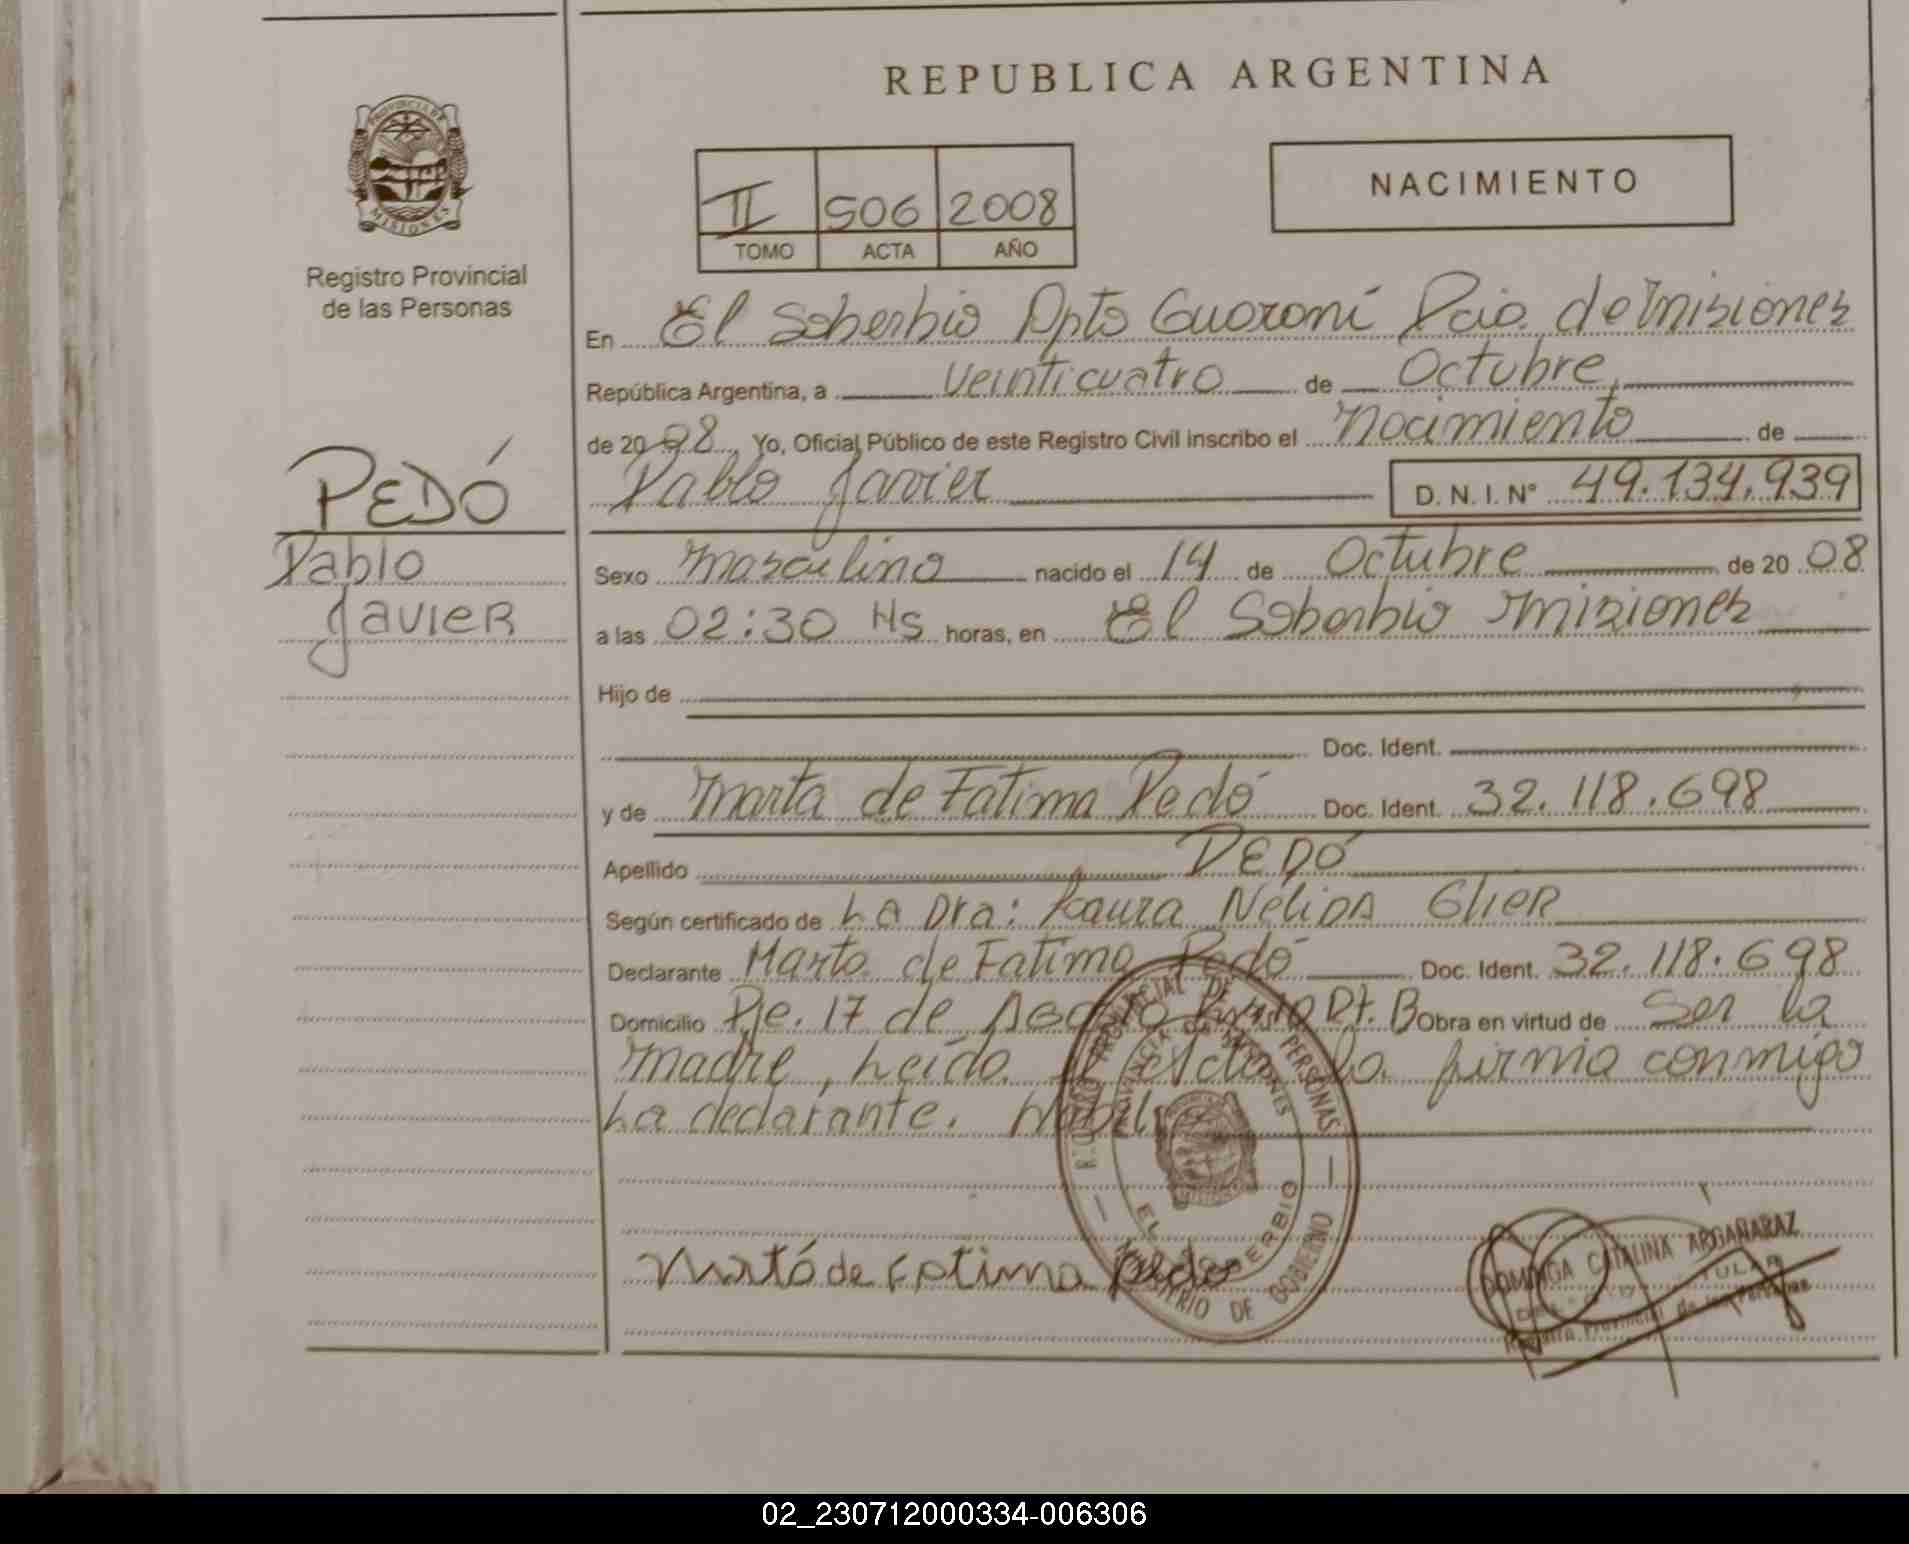 REPUBLICA ARGENTINA
PROVINCIA DE
MISIONES
Registro Provincial
de las Personas
NACIMIENTO
II 506 2008
TOMO ACTA AÑO
En El Soberbio Dpto Guaraní Pcia. de Misiones
República Argentina, a veinticuatro de Octubre
de 2008, Yo, Oficial Público de este Registro Civil inscribo el nacimiento de
Pablo Javier D. N. I. Nº 49.134.939
PEDÓ
Pablo
Javier
Sexo masculino nacido el 14 de Octubre de 2008
a las 02:30 Hs horas, en El Soberbio Misiones
Hijo de
Doc. Ident.
y de Marta de Fatima Pedó Doc. Ident. 32.118.698
Apellido PEDÓ
Según certificado de La Dra: Laura Nélida
Declarante Marta de Fatima Pedó Doc. Ident. 32.118.698
Domicilio Pje. 17 de Agosto Obra en virtud de Ser la
madre, Leída el Acta la firma conmigo
La declarante.
REGISTRO PROVINCIAL DE LAS PERSONAS
PROVINCIA DE MISIONES
EL SOBERBIO
MINISTERIO DE GOBIERNO
Marta de Fatima Pedo
DOMINGA CATALINA ARGAÑARAZ
TULAR
Registro Provincial de las Personas
02_230712000334-006306